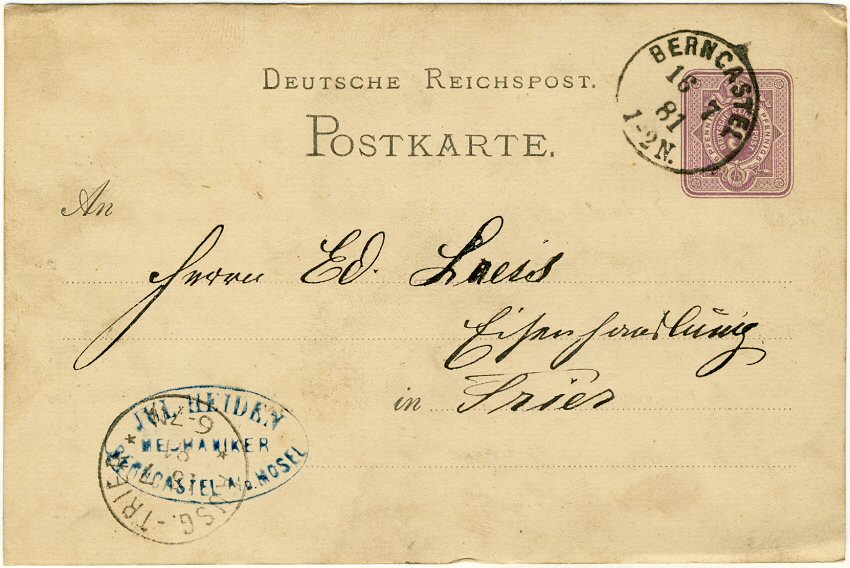 DEUTSCHE REICHSPOST.
POSTKARTE.
BERNCASTEL
16 7
81
1-2N.
PFENNIG
PFENNIG
An
Herrn Ed. Laeis
Eisenhandlung
in Trier
JUL. HEIDEN
MECHANIKER
BERNCASTEL A/D. MOSEL
6-7N
TRIER